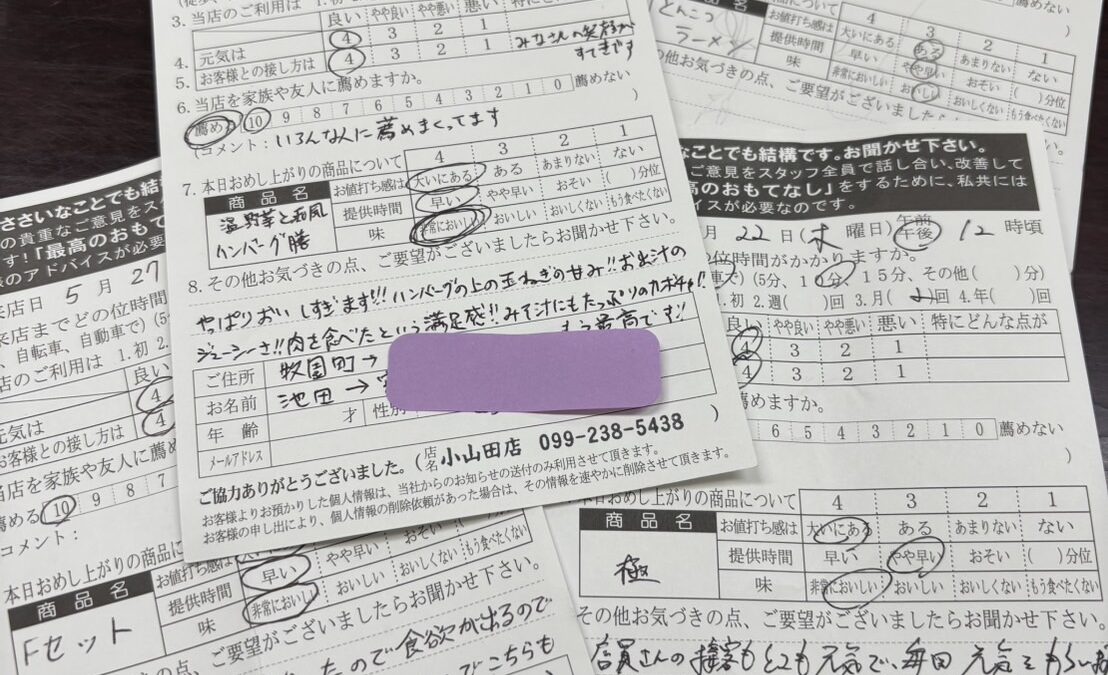 3. 当店のご利用は 1.初
良い やや良い やや悪い 悪い 特にどん
4. 元気は 4 3 2 1
5. お客様との接し方は 4 3 2 1 みなさんの笑顔が
すてきです
6. 当店を家族や友人に薦めますか。
薦める 10 9 8 7 6 5 4 3 2 1 0 薦めない
(コメント：いろんな人に薦めまくってます )
7. 本日お召し上がりの商品について 4 3 2 1
商品名 お値打ち感は 大いにある ある あまりない ない
温野菜と和風 提供時間 早い やや早い おそい ( )分位
ハンバーグ膳 味 非常においしい おいしい おいしくない もう食べたくない
8. その他お気づきの点、ご要望がございましたらお聞かせ下さい。
やっぱりおいしすぎます!!! ハンバーグの上の玉ねぎの甘み!! お出汁の
ジューシーさ!! 肉を食べたという満足感!! みそ汁にもたっぷりのカボチャ!!
もう最高です!!
ご住所 牧園町→
お名前 池田→
年齢 才 性別
メールアドレス
ご協力ありがとうございました。(店名 小山田店 099-238-5438 )
お客様よりお預かりした個人情報は、当社からのお知らせの送付のみ利用させて頂きます。
お客様の申し出により、個人情報の削除依頼があった場合は、その情報を速やかに削除させて頂きます。
とんこつ
ラーメン
について 4 3 2 1
お値打ち感は 大いにある ある あまりない ない
提供時間 早い やや早い おそい ( )分位
味 非常においしい おいしい おいしくない もう食べたくない
の他お気づきの点、ご要望がございました
なことでも結構です。お聞かせ下さい。
ご意見をスタッフ全員で話し合い、改善して
高のおもてなし」をするために、私共には
バイスが必要なのです。
月 22日(木曜日) 午前 午後 12時頃
位時間がかかりますか。
車で)(5分、10分、15分、その他( )分)
1.初 2.週( )回 3.月( 2 )回 4.年( )回
良い やや良い やや悪い 悪い 特にどんな点が
4 3 2 1
4 3 2 1
めますか。
6 5 4 3 2 1 0 薦めない
)
本日おめし上がりの商品について 4 3 2 1
商品名 お値打ち感は 大いにある ある あまりない ない
極 提供時間 早い やや早い おそい ( )分位
味 非常においしい おいしい おいしくない もう食べたくない
その他お気づきの点、ご要望がございましたらお聞かせ下さい。
店員さんの接客もとても元気で、毎回 元気をもらい
ささいなことでも結構
の貴重なご意見をスタ
す!「最高のおもて
のアドバイスが必要
来店日 5月27
来店までどの位時間
、自転車、自動車で)(5
店のご利用は 1.初 2
良い
元気は 4
お客様との接し方は 4
当店を家族や友人に薦め
薦める 10 9 8 7
コメント：
本日おめし上がりの商品に
商品名 お値打ち感は 大いにある
Fセット 提供時間 早い やや早い おそい ( )分位
味 非常においしい おいしい おいしくない もう食べたくない
の他お気づきの点、ご要望がございましたらお聞かせ下さい。
たので食欲が出るので
でこちらも